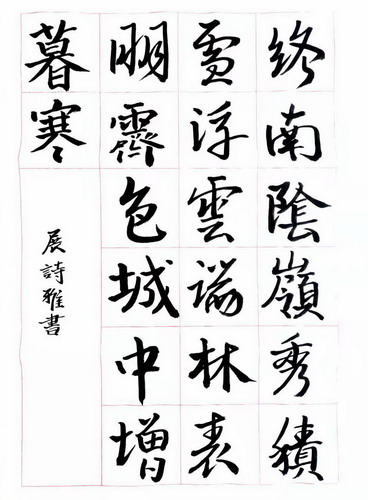 終南陰嶺秀積
雪浮雲端林表
明霽色城中增
暮寒
展詩雅書